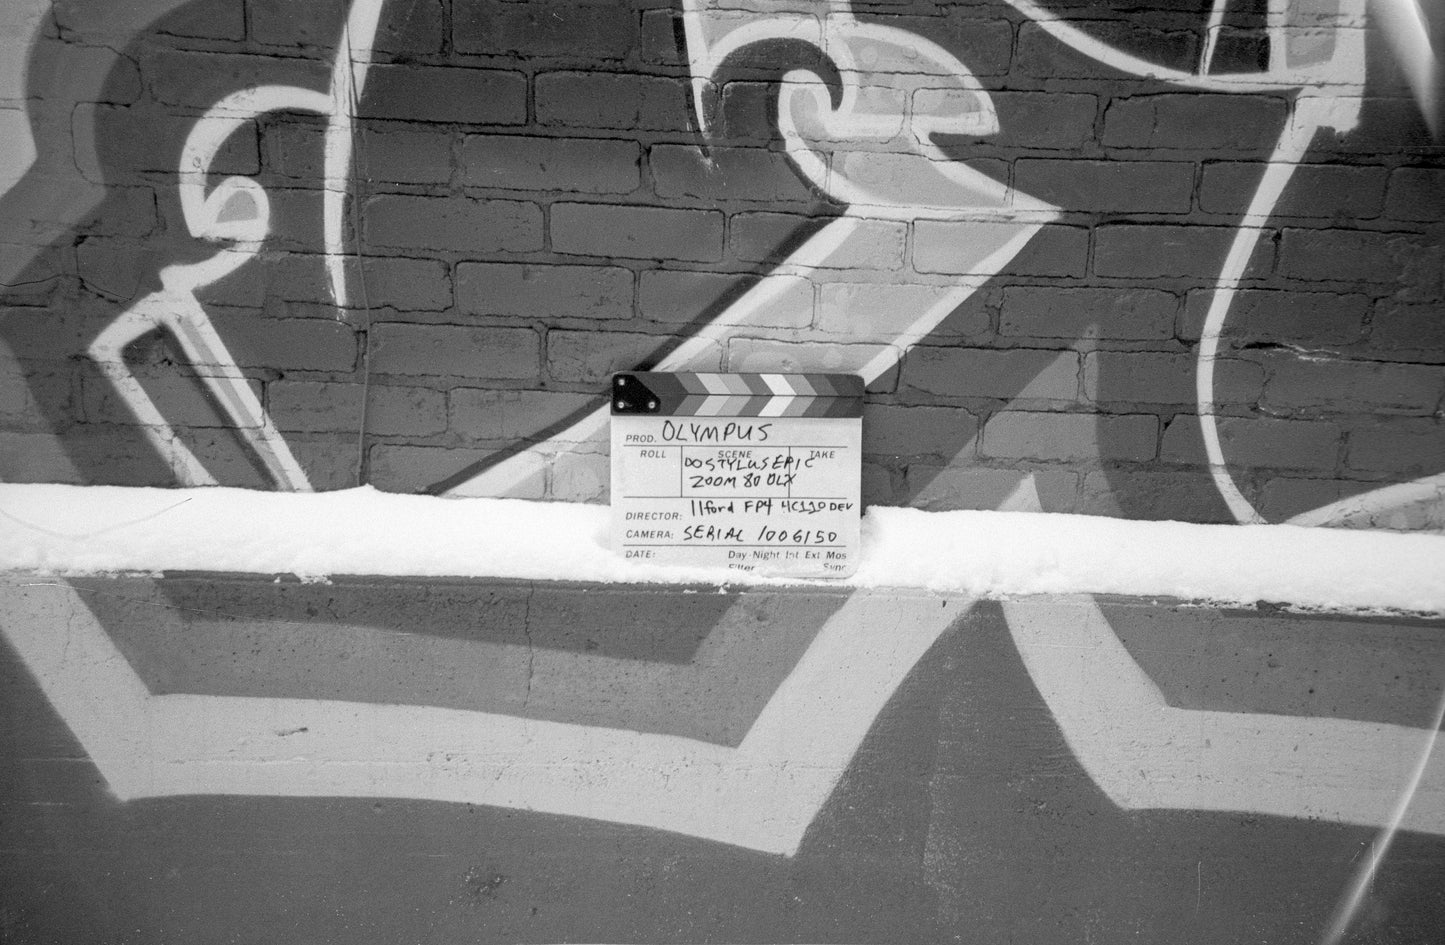 PROD. OLYMPUS
ROLL SCENE TAKE
DO STYLUS EPIC
ZOOM 80 DLX
DIRECTOR: Ilford FP4 HC110 DEV
CAMERA: SERIAL 1006150
DATE: Day-Night Int Ext Mos
Filter Sync